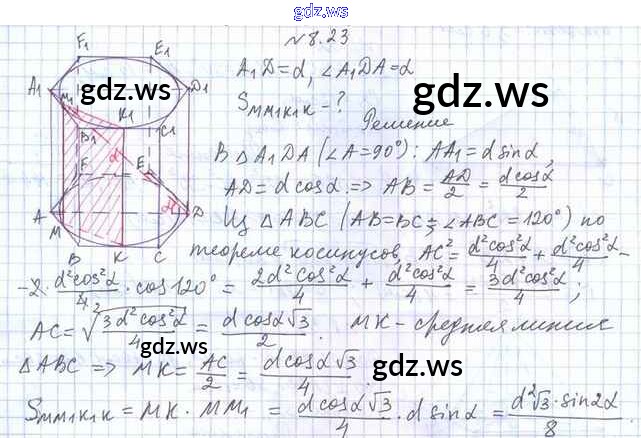 gdz.ws
№8.23
A₁D=d, ∠A₁DA=α
S_MM₁K₁K - ?
Решение
В △A₁DA (∠A=90°): AA₁=d sinα,
AD=d cosα => AB = AD/2 = d cosα/2
Из △ABC (AB=BC; ∠ABC=120°) по
теореме косинусов, AC² = d²cos²α/4 + d²cos²α/4 -
-2· d²cos²α/4 · cos120° = 2d²cos²α/4 + d²cos²α/4 = 3d²cos²α/4;
AC = √(3d²cos²α/4) = d cosα√3/2. MK - средняя линия
△ABC => MK = AC/2 = d cosα√3/4.
S_MM₁K₁K = MK · MM₁ = d cosα√3/4 · d sinα = d²√3·sin2α/8
F₁
E₁
A₁
M₁
D₁
K₁
B₁
C₁
d
F
E
A
M
α
D
B
K
C
gdz.ws
gdz.ws
gdz.ws
gdz.ws